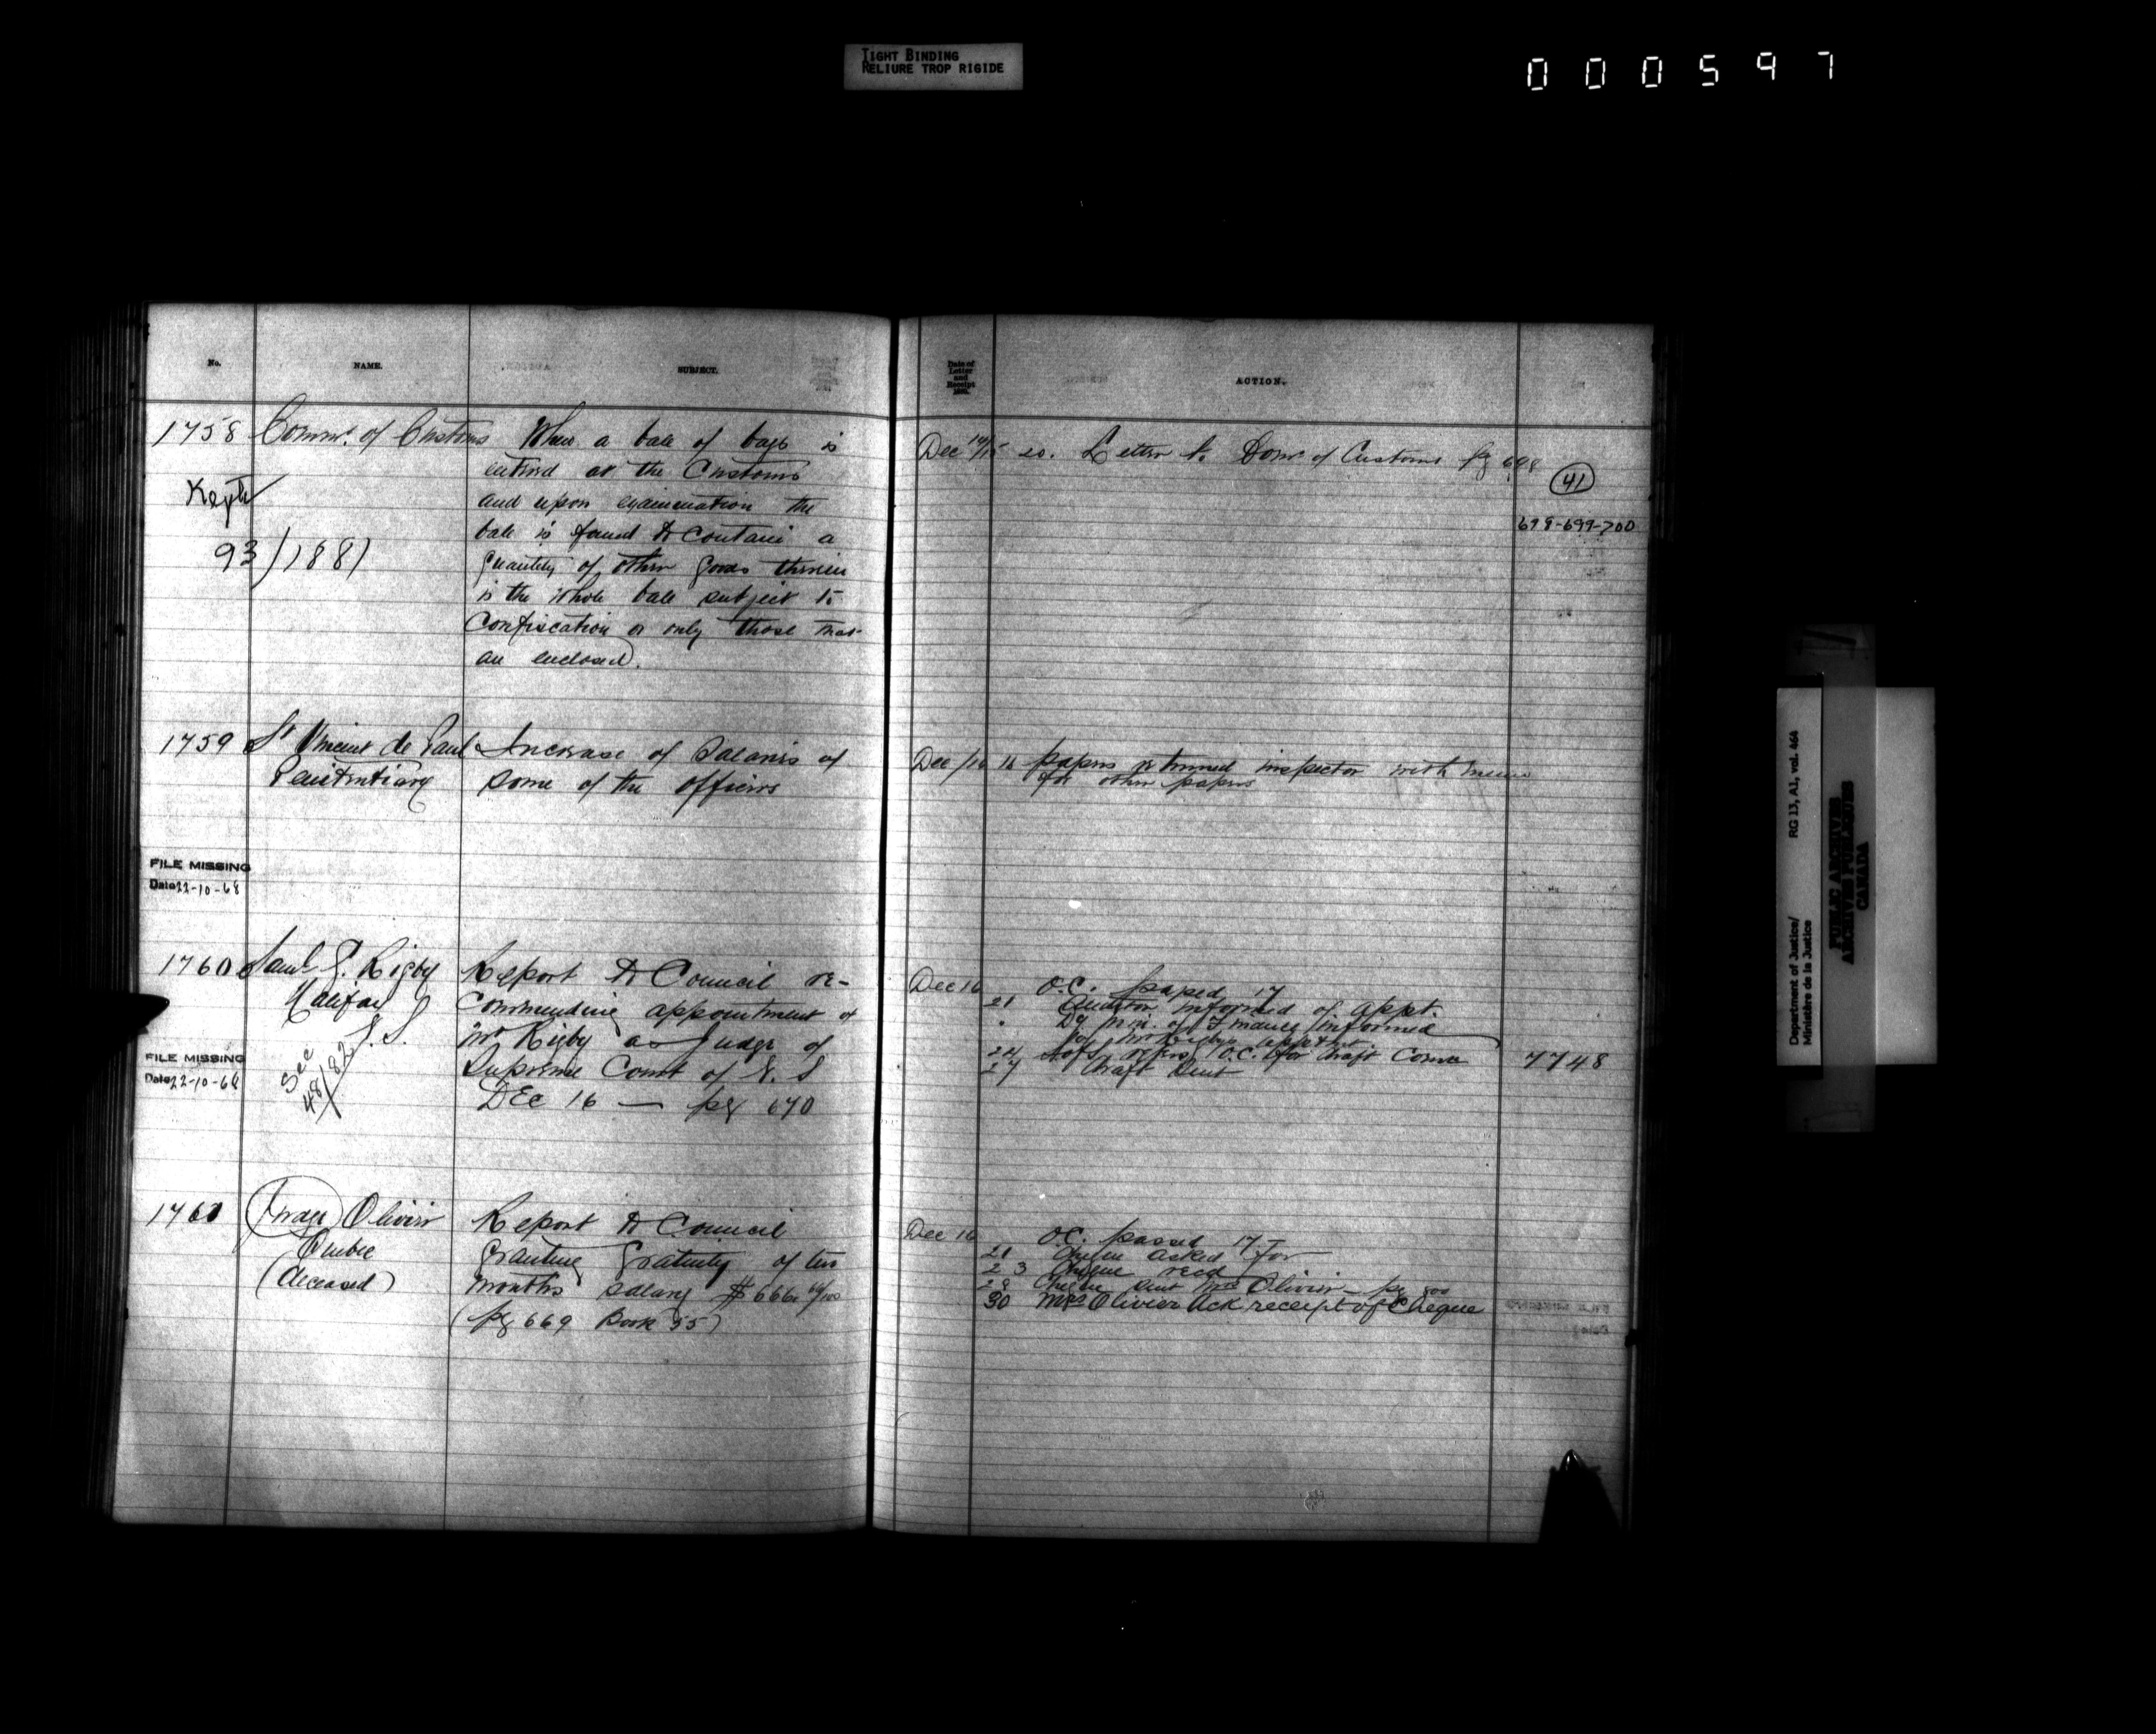 TIGHT BINDING
RELIURE TROP RIGIDE
000597
No.
NAME.
SUBJECT.
Date of
Letter
and
Receipt
ACTION.
1758 Commr. of Customs When a bale of bags is
entered at the Customs
and upon examination the
bale is found to contain a
quantity of other goods therein
is the whole bale subject to
confiscation or only those that
are enclosed.
Kept
93/1881
Dec 14/15 20. Letter to Comr of Customs pg 698
41
698-699-700
1759 St Vincent de Paul Increase of Salaries of
Penitentiary some of the officers
Dec /16 16 papers returned inspector with memo
for other papers
FILE MISSING
Date 22-10-68
1760 Saml G. Rigby Report to Council re-
Halifax commending appointment of
N.S. Mr Rigby as Judge of
Supreme Court of N. S
DEC 16 — pg 670
See
48/82
FILE MISSING
Date 22-10-68
Dec 16 O.C. passed 17
21 Auditor informed of appt.
" Dy Min. of Finance informed
of Mr Rigby's apptmt.
24 refers O.C. for draft Comn
27 draft sent
7748
1761 Olivier Report to Council
Quebec granting gratuity of two
(deceased) months salary $666 66/100
(pg 669 Book 35)
Dec 16 O.C. passed 17
21 Cheque asked for
23 Cheque recd
28 Cheque sent Mrs Olivier – pg 800
30 Mrs Olivier Ack receipt of Cheque
Department of Justice/
Ministère de la Justice
RG 13, A1, vol. 464
PUBLIC ARCHIVES
ARCHIVES PUBLIQUES
CANADA